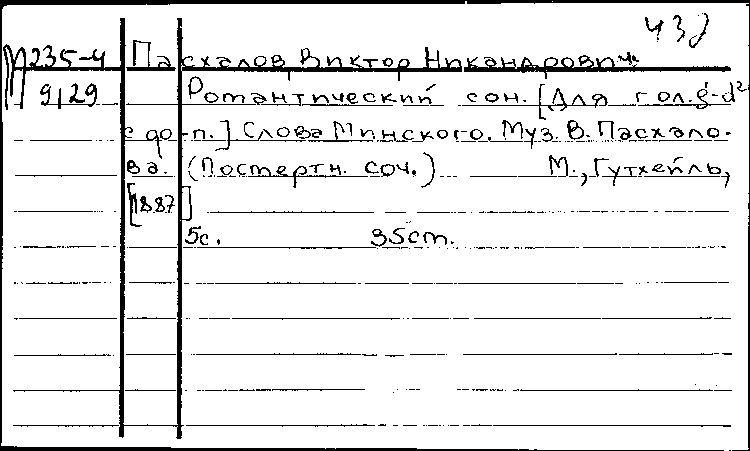 432
M 235-4 Пасхалов Виктор Никандрович
9129 Романтический сон. [Для гол. g'-d²
с ф-п.] Слова Минского. Муз. В. Пасхало-
ва. (Постертн. соч.) М., Гутхейль,
[1887]
5с. 35cm.